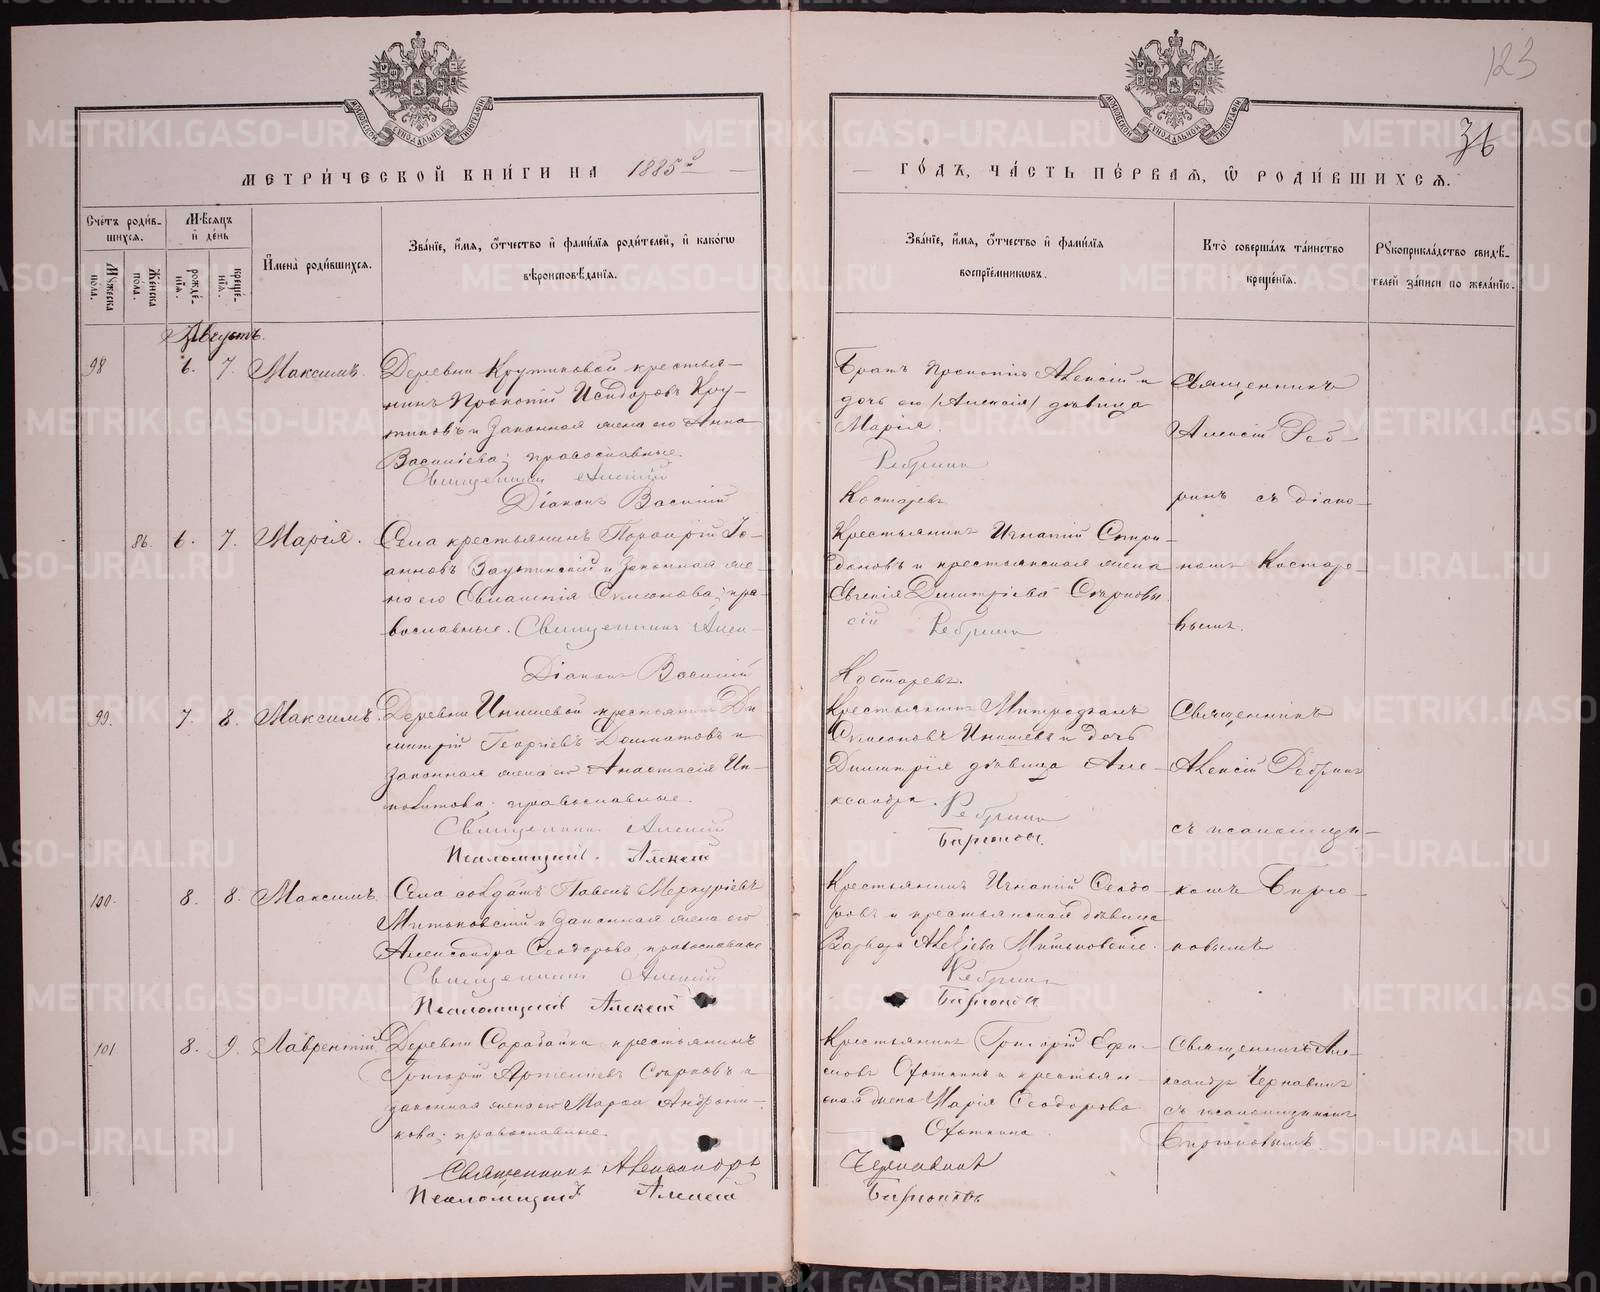 123
36
МЕТРИ́ЧЕСКОЙ КНИ́ГИ НА 1885 ГО́ДЪ, ЧА́СТЬ ПЕ́РВАЯ, Ѡ РОДИ́ВШИХСЯ.
Сче́тъ роди́в-
шихся.
Мꙋ́жеска пола.
Же́нска пола.
Мѣ́сяцъ
и де́нь
рожде́-
нїя.
креще́-
нїя.
И҆мена̀ роди́вшихся.
Зва́нїе, и҆́мя, ѻ҆́тчество и҆ фами́лїя роди́телей, и҆ како́гѡ
вѣроисповѣ́данїя.
Зва́нїе, и҆́мя, ѻ҆́тчество и҆ фами́лїя
воспрїе́мниковъ.
Кто̀ соверша́лъ та́инство
креще́нїя.
Рꙋкоприкла́дство свидѣ́-
телей за́писи по жела́нїю.
Августъ.
98 6. 7. Максимъ.
Деревни Крутиковой крестья-
нинъ Прокопій Исидоровъ Кру-
тиковъ и законная жена его Анна
Васильева; православные.
Священникъ Алексій
Діаконъ Василій
Братъ Прокопія Алексій и
дочь его /Алексія/ дѣвица
Марія.
Ребринъ
Костаревъ
Священникъ
Алексій Реб-
ринъ съ діако-
номъ Костаре-
вымъ.
86. 6. 7. Марія.
Села крестьянинъ Порфирій Іо-
анновъ и законная же-
на его Симеонова; пра-
вославные. Священникъ Алек-
Діаконъ Василій
Крестьянинъ Игнатій Спири-
доновъ и крестьянская жена
Евгенія Димитріева
сій Ребринъ
Костаревъ.
99. 7. 8. Максимъ.
Деревни Инишевой крестьянинъ Ди
митрій Георгіевъ Долматовъ и
законная жена его Анастасія Ип-
политова; православные.
Священникъ Алексій
Псаломщикъ Алексей
Крестьянинъ Митрофанъ
Симеоновъ Инишевъ и дочь
Димитрія дѣвица Але-
ксандра.
Ребринъ
Бирюковъ.
Священникъ
Алексій Ребринъ
съ псаломщи-
комъ Бирю-
ковымъ
100. 8. 8. Максимъ.
Села солдатъ Павелъ Меркурьевъ
Митьковскій и законная жена его
Александра Феодорова, православные
Священникъ Алексій
Псаломщикъ Алексей
Крестьянинъ Игнатій Феодо-
ровъ и крестьянская дѣвица
Варвара Митьковскіе.
Ребринъ
Бирюковъ
101. 8. 9. Лаврентій
Деревни Сарабайки крестьянинъ
Григорій Артеміевъ и
законная жена его Марѳа Андрони-
кова; православные.
Священникъ Александръ
Псаломщикъ Алексей
Крестьянинъ Григорій Ефи-
мовъ и крестьян-
ская жена Марія Феодорова
Чернавинъ
Бирюковъ
Священникъ Але-
ксандръ Чернавинъ
съ псаломщикомъ
Бирюковымъ.
METRIKI.GASO-URAL.RU